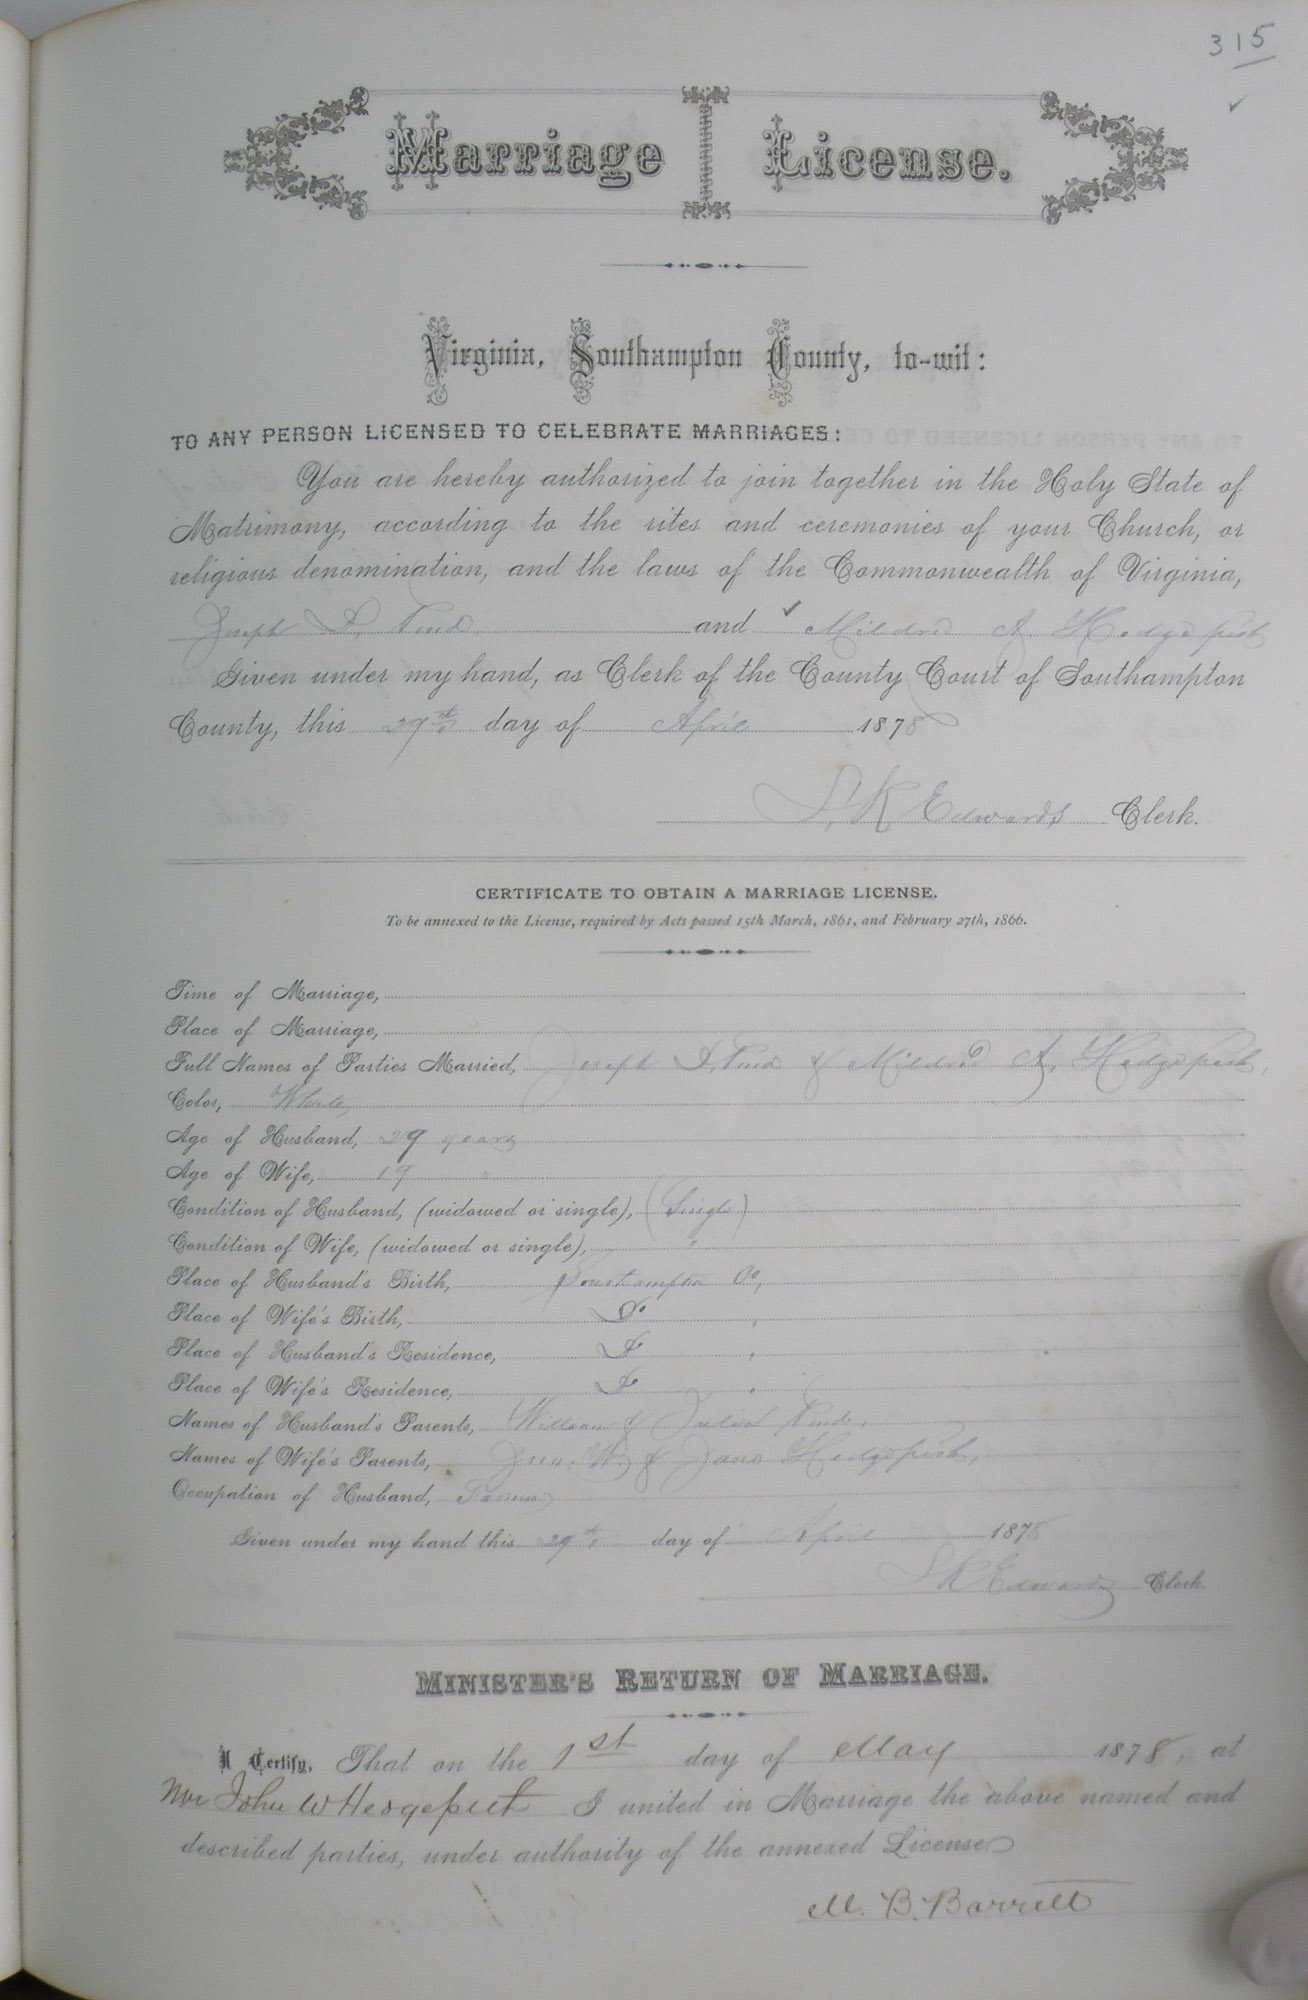 315
Marriage License.
Virginia, Southampton County, to-wit:
TO ANY PERSON LICENSED TO CELEBRATE MARRIAGES:
You are hereby authorized to join together in the Holy State of
Matrimony, according to the rites and ceremonies of your Church, or
religious denomination, and the laws of the Commonwealth of Virginia,
Joseph and Mildred A. Hedgepeth
Given under my hand, as Clerk of the County Court of Southampton
County, this 29th day of April 1878
S. K Edwards Clerk.
CERTIFICATE TO OBTAIN A MARRIAGE LICENSE.
To be annexed to the License, required by Acts passed 15th March, 1861, and February 27th, 1866.
Time of Marriage,
Place of Marriage,
Full Names of Parties Married, Joseph & Mildred A. Hedgepeth,
Color, White,
Age of Husband, 29 years
Age of Wife, 19 "
Condition of Husband, (widowed or single), (Single)
Condition of Wife, (widowed or single), "
Place of Husband's Birth, Southampton Co,
Place of Wife's Birth, Do "
Place of Husband's Residence, Do "
Place of Wife's Residence, Do "
Names of Husband's Parents, William &
Names of Wife's Parents, Jno. W. & Jane Hedgepeth,
Occupation of Husband, Farmer
Given under my hand this 29th day of April 1878
S K Edwards Clerk.
MINISTER'S RETURN OF MARRIAGE.
I Certify, That on the 1st day of May 1878, at
Mr John W Hedgepeth I united in Marriage the above named and
described parties, under authority of the annexed License
M. B. Barrett